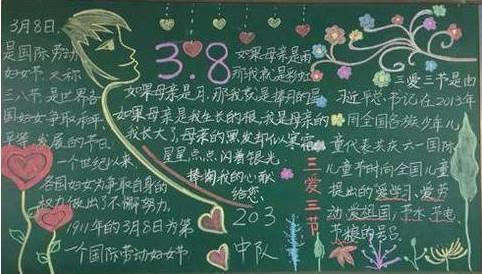 3月8日,
是国际劳动
妇女节,又称
三八节,是世界各
国妇女争取和平、
平等、发展的节日。
一个世纪以来,
各国妇女为争取自身的
权力做出了不懈努力。
1911年的3月8日为第
一个国际劳动妇女节
3.8
如果母亲是雨
那我就是彩虹
如果母亲是月,那我就是捧月的星
如果母亲是我生长的根,我是母亲的
我长大了,母亲的黑发却似寒霜
星星点点闪着银光
捧掏我的心献
给您.
203
中队
三爱三节
三爱三节是由
习近平总书记在2013年
同全国各族少年儿
童代表共庆六一国际
儿童节时向全国儿童
提出的爱学习、爱劳
动、爱祖国,节水、节电、
节粮的号召